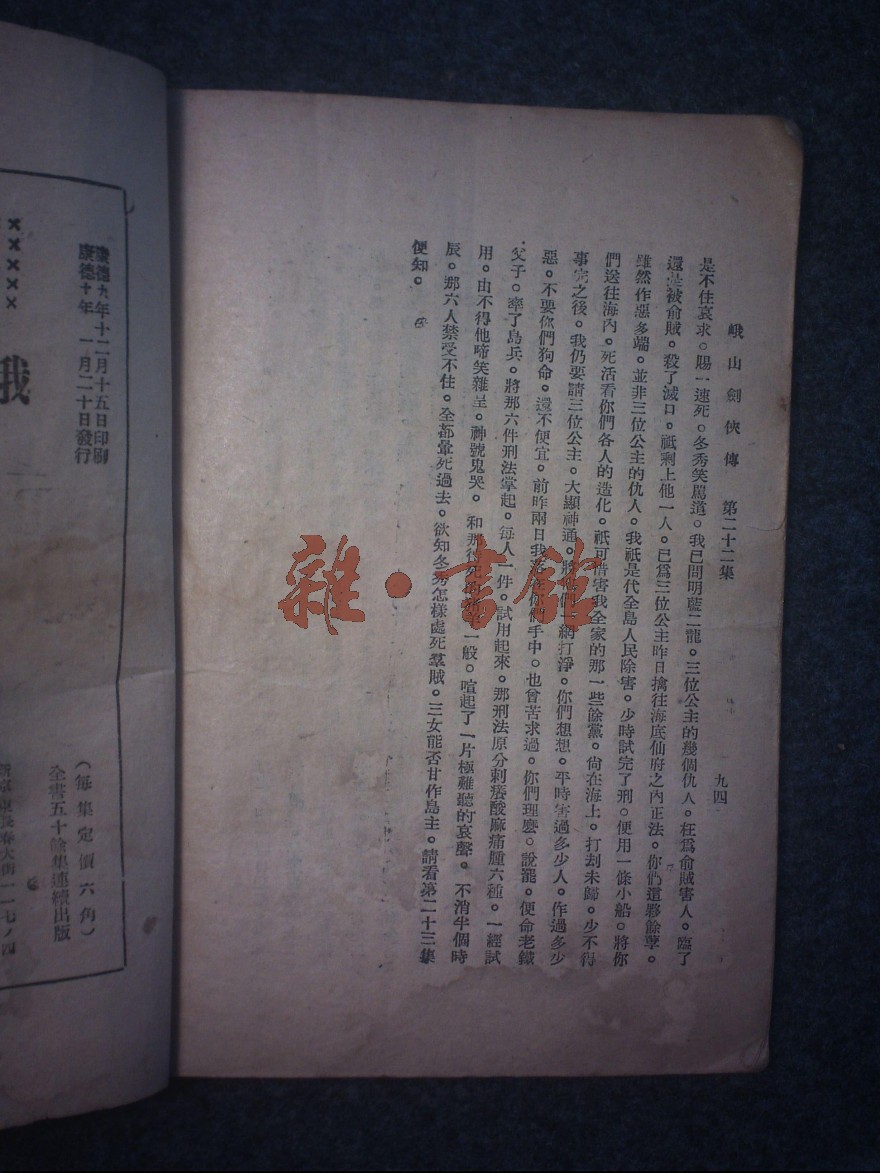 峨山劍俠傳　第二十二集
九四
是不住哀求。賜一速死。冬秀笑罵道。我已問明藍二龍。三位公主的幾個仇人。枉為俞賊害人。臨了
還是被俞賊。殺了滅口。祇剩上他一人。已為三位公主昨日擒往海底仙府之內正法。你們這夥餘孽。
雖然作惡多端。並非三位公主的仇人。我祇是代全島人民除害。少時試完了刑。便用一條小船。將你
們送往海內。死活看你們各人的造化。祇可惜害我全家的那一些餘黨。尙在海上。打刦未歸。少不得
事完之後。我仍要請三位公主。大顯神通。將他們一網打淨。你們想想。平時害過多少人。作過多少
惡。不要你們狗命。還不便宜。前昨兩日我落在你們手中。也曾苦求過。你們理麽。說罷。便命老鐵
父子。率了島兵。將那六件刑法掌起。每人一件。試用起來。那刑法原分刺癢酸麻痛腫六種。一經試
用。由不得他啼笑雜呈。神號鬼哭。和那待死的一般。喧起了一片極難聽的哀聲。不消半個時
辰。那六人禁受不住。全都暈死過去。欲知冬秀怎樣處死羣賊。三女能否甘作島主。請看第二十三集
便知。
×××××
康德九年十二月十五日印刷
康德十年一月二十日發行
（每集定價六角）
全書五十餘集連續出版
東長春大街一一七ノ四
雜·書館